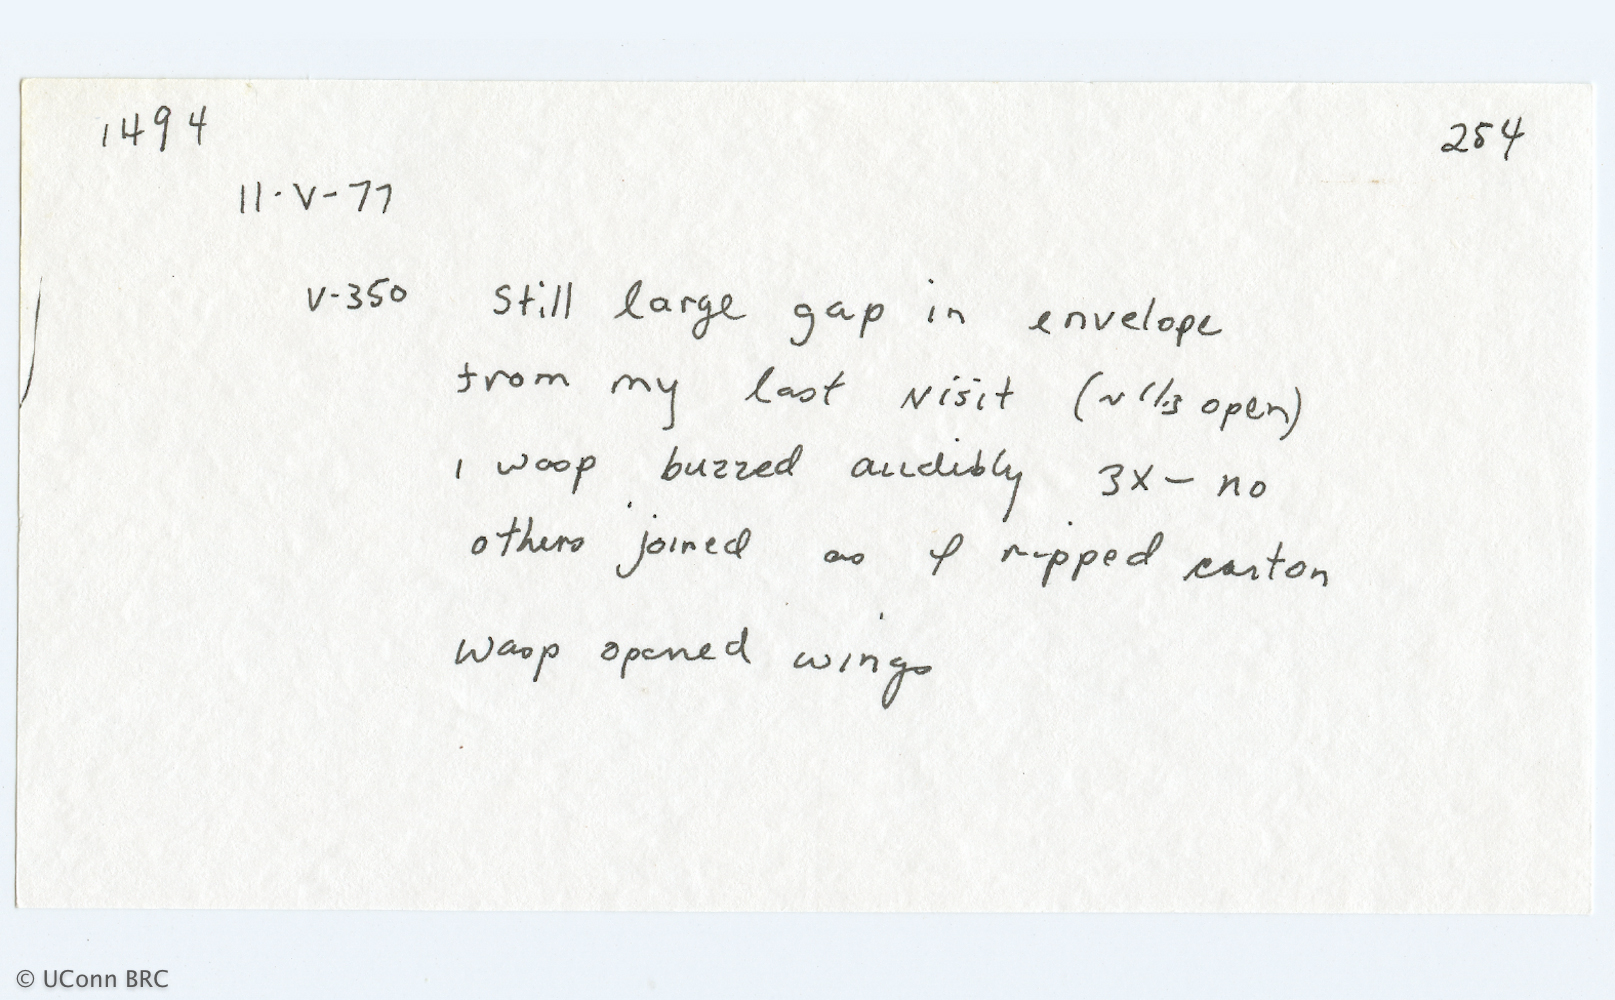 1494 254
11-V-77
V-350 Still large gap in envelope
from my last visit (~ 1/3 open)
1 wasp buzzed audibly 3X - no
others joined as I ripped carton
Wasp opened wings
© UConn BRC